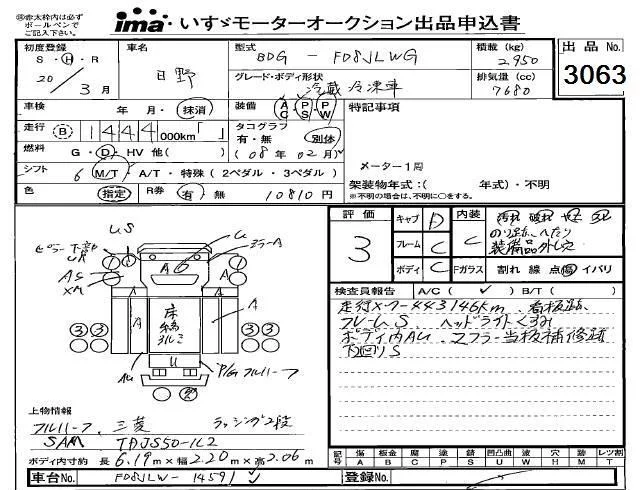 ※赤太枠内は必ず
ボールペンで
ご記入下さい。
ima いすゞモーターオークション出品申込書
初度登録 車名 型式 BDG - FD8JLWG 積載(kg) 2950 出品No.
S・H・R 20/3月 日野 グレード・ボディ形状 冷蔵冷凍車 排気量(cc) 7680 3063
車検 年 月・抹消 装備 AC・PS・PW 特記事項
走行 B 1444 000km「 」 タコグラフ 有・無 別体
燃料 G・D・HV 他( ) (08年02月) メーター1周
シフト 6 M/T・A/T・特殊(2ペダル・3ペダル) 架装物年式:( 年式)・不明
色 指定 R券 有・無 10810円 ※不明の場合は、不明に○をする。
評価 3 キャブ D 内装 C
フレーム C 装備品外し
ボディ C Fガラス 割れ 線 点 傷 イバリ
検査員報告 A/C( ✓ ) B/T( )
走行メーター443146km 看板跡
フレームS ヘッドライトくすみ
ボディ内AU マフラー当板補修跡
下回りS
US
ピラー下部
UR
AS
XM
U
A
ミラーA
A
A
床
縞
A
A
U
AU
P/Gフルハーフ
3
3
3
3
上物情報
フルハーフ、三菱 ラッシング2段
SAM TDJS50-1L2
ボディ内寸約 長6.19m×幅2.20m×高2.06m
記号 傷 A 板金 B 腐 C 塗 P 錆 S 凹 U 波 W 穴 H 跡 M レツ割 T
車台No. FD8JLW-14591 ✓ 登録No.